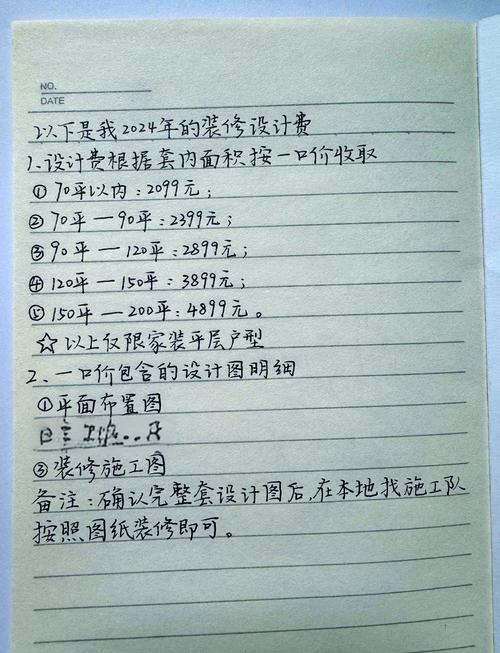 NO.
DATE
以下是我2024年的装修设计费
1、设计费根据套内面积按一口价收取
①70平以内：2099元；
②70平一90平：2399元；
③90平一120平：2899元；
④120平一150平：3899元；
⑤150平一200平：4899元。
☆以上仅限家装平层户型
2、一口价包含的设计图明细
①平面布置图
③装修施工图
备注：确认完整套设计图后，在本地找施工队
按照图纸装修即可。